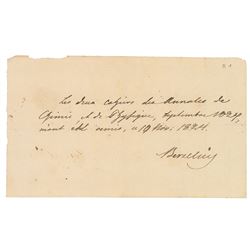 Les deux cahiers des Annales de
Chimie, et de Physique, Septembre 1824,
m'ont été remis, a 19 Nov. 1824.
Berzelius